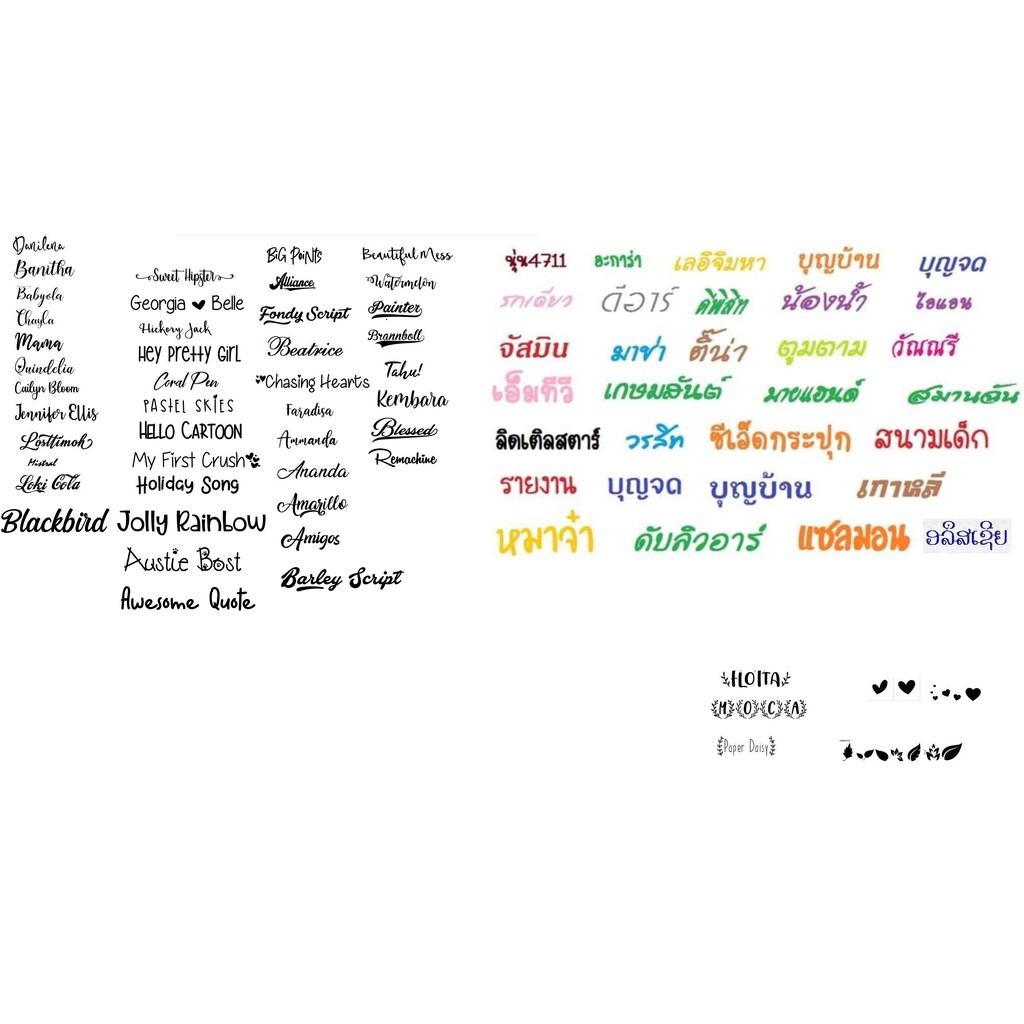 Danilena
Banitha
Babyola
Chayla
Mama
Quindelia
Cailyn Bloom
Jennifer Ellis
Losttimok
Mistral
Loki Cola
Blackbird
Sweet Hipster
Georgia Belle
Hickory Jack
Hey Pretty Girl
Coral Pen
PASTEL SKIES
HELLO CARTOON
My First Crush
Holiday Song
Jolly Rainbow
Austie Bost
Awesome Quote
BiG PoiNts
Alliance
Fondy Script
Beatrice
Chasing Hearts
Faradisa
Ammanda
Ananda
Amarillo
Amigos
Barley Script
Beautiful Mess
Watermelon
Painter
Brannboll
Tahu!
Kembara
Blessed
Remachine
นุ่น4711 อะการ่า เลอิจิมหา บุญบ้าน บุญจด
รกเดียว ดีอาร์ ดิพิสิท น้องน้ำ ไอแอน
จัสมิน มาช่า ติ๊น่า ตูมตาม วัณณรี
เอ็มทีวี เกษมสันต์ มายแฮนด์ สมานฉัน
ลิตเติลสตาร์ วรสิท ซีเอ็ดกระปุก สนามเด็ก
รายงาน บุญจด บุญบ้าน เกาหลี
หมาจ๋า ดับลิวอาร์ แซลมอน ອລິສເຊີຍ
HOITA
MOCA
Paper Daisy